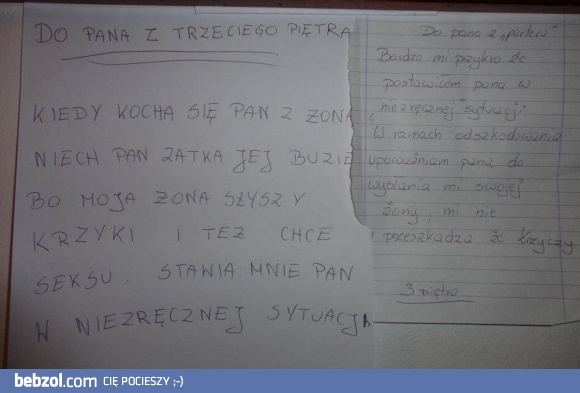 DO PANA Z TRZECIEGO PIĘTRA
KIEDY KOCHA SIĘ PAN Z ŻONĄ,
NIECH PAN ZATKA JEJ BUZIE
BO MOJA ŻONA SŁYSZY
KRZYKI I TEŻ CHCE
SEKSU. STAWIA MNIE PAN
W NIEZRĘCZNEJ SYTUACJI
Do pana z "parteru"
Bardzo mi przykro że
postawiłem pana w
niezręcznej sytuacji
W ramach odszkodowania
upoważniam pana do
wysłania mi swojej
żony, mi nie
przeszkadza że krzyczy
3 piętro
bebzol.com CIĘ POCIESZY ;-)